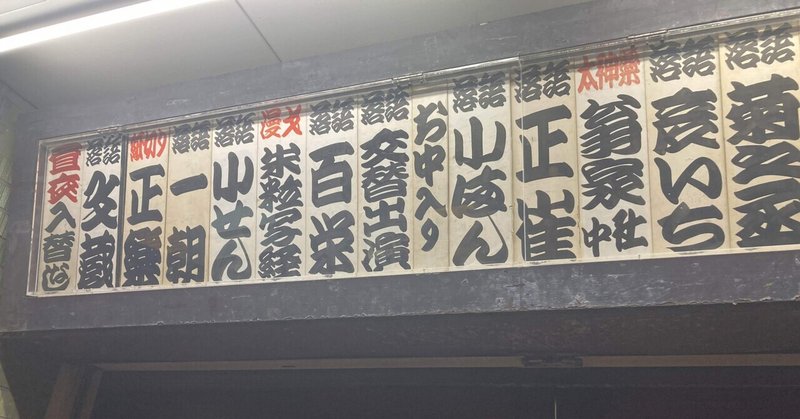 落語 菊之丞
落語 彦いち
太神楽 翁家社中
落語 正雀
落語 小はん
お中入り
落語 交替出演
落語 百栄
漫才 米粒写経
落語 小せん
落語 一朝
紙切り 正楽
落語 文蔵
昼夜入替なし